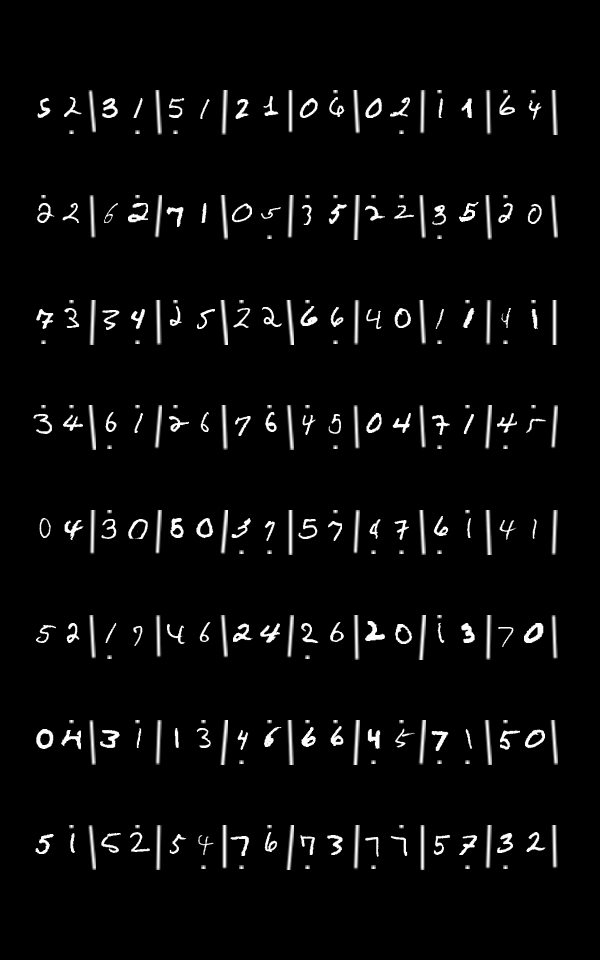 5 2 | 3 1 | 5 1 | 2 1 | 0 6 | 0 2 | 1 1 | 6 4 |
2 2 | 6 2 | 7 1 | 0 5 | 3 5 | 2 2 | 3 5 | 2 0 |
7 3 | 3 4 | 2 5 | 2 2 | 6 6 | 4 0 | 1 1 | 4 1 |
3 4 | 6 1 | 2 6 | 7 6 | 4 5 | 0 4 | 7 1 | 4 5 |
0 4 | 3 0 | 5 0 | 3 7 | 5 7 | 4 7 | 6 1 | 4 1 |
5 2 | 1 7 | 4 6 | 2 4 | 2 6 | 2 0 | 1 3 | 7 0 |
0 4 | 3 1 | 1 3 | 4 6 | 6 6 | 4 5 | 7 1 | 5 0 |
5 1 | 5 2 | 5 4 | 7 6 | 7 3 | 7 7 | 5 7 | 3 2 |